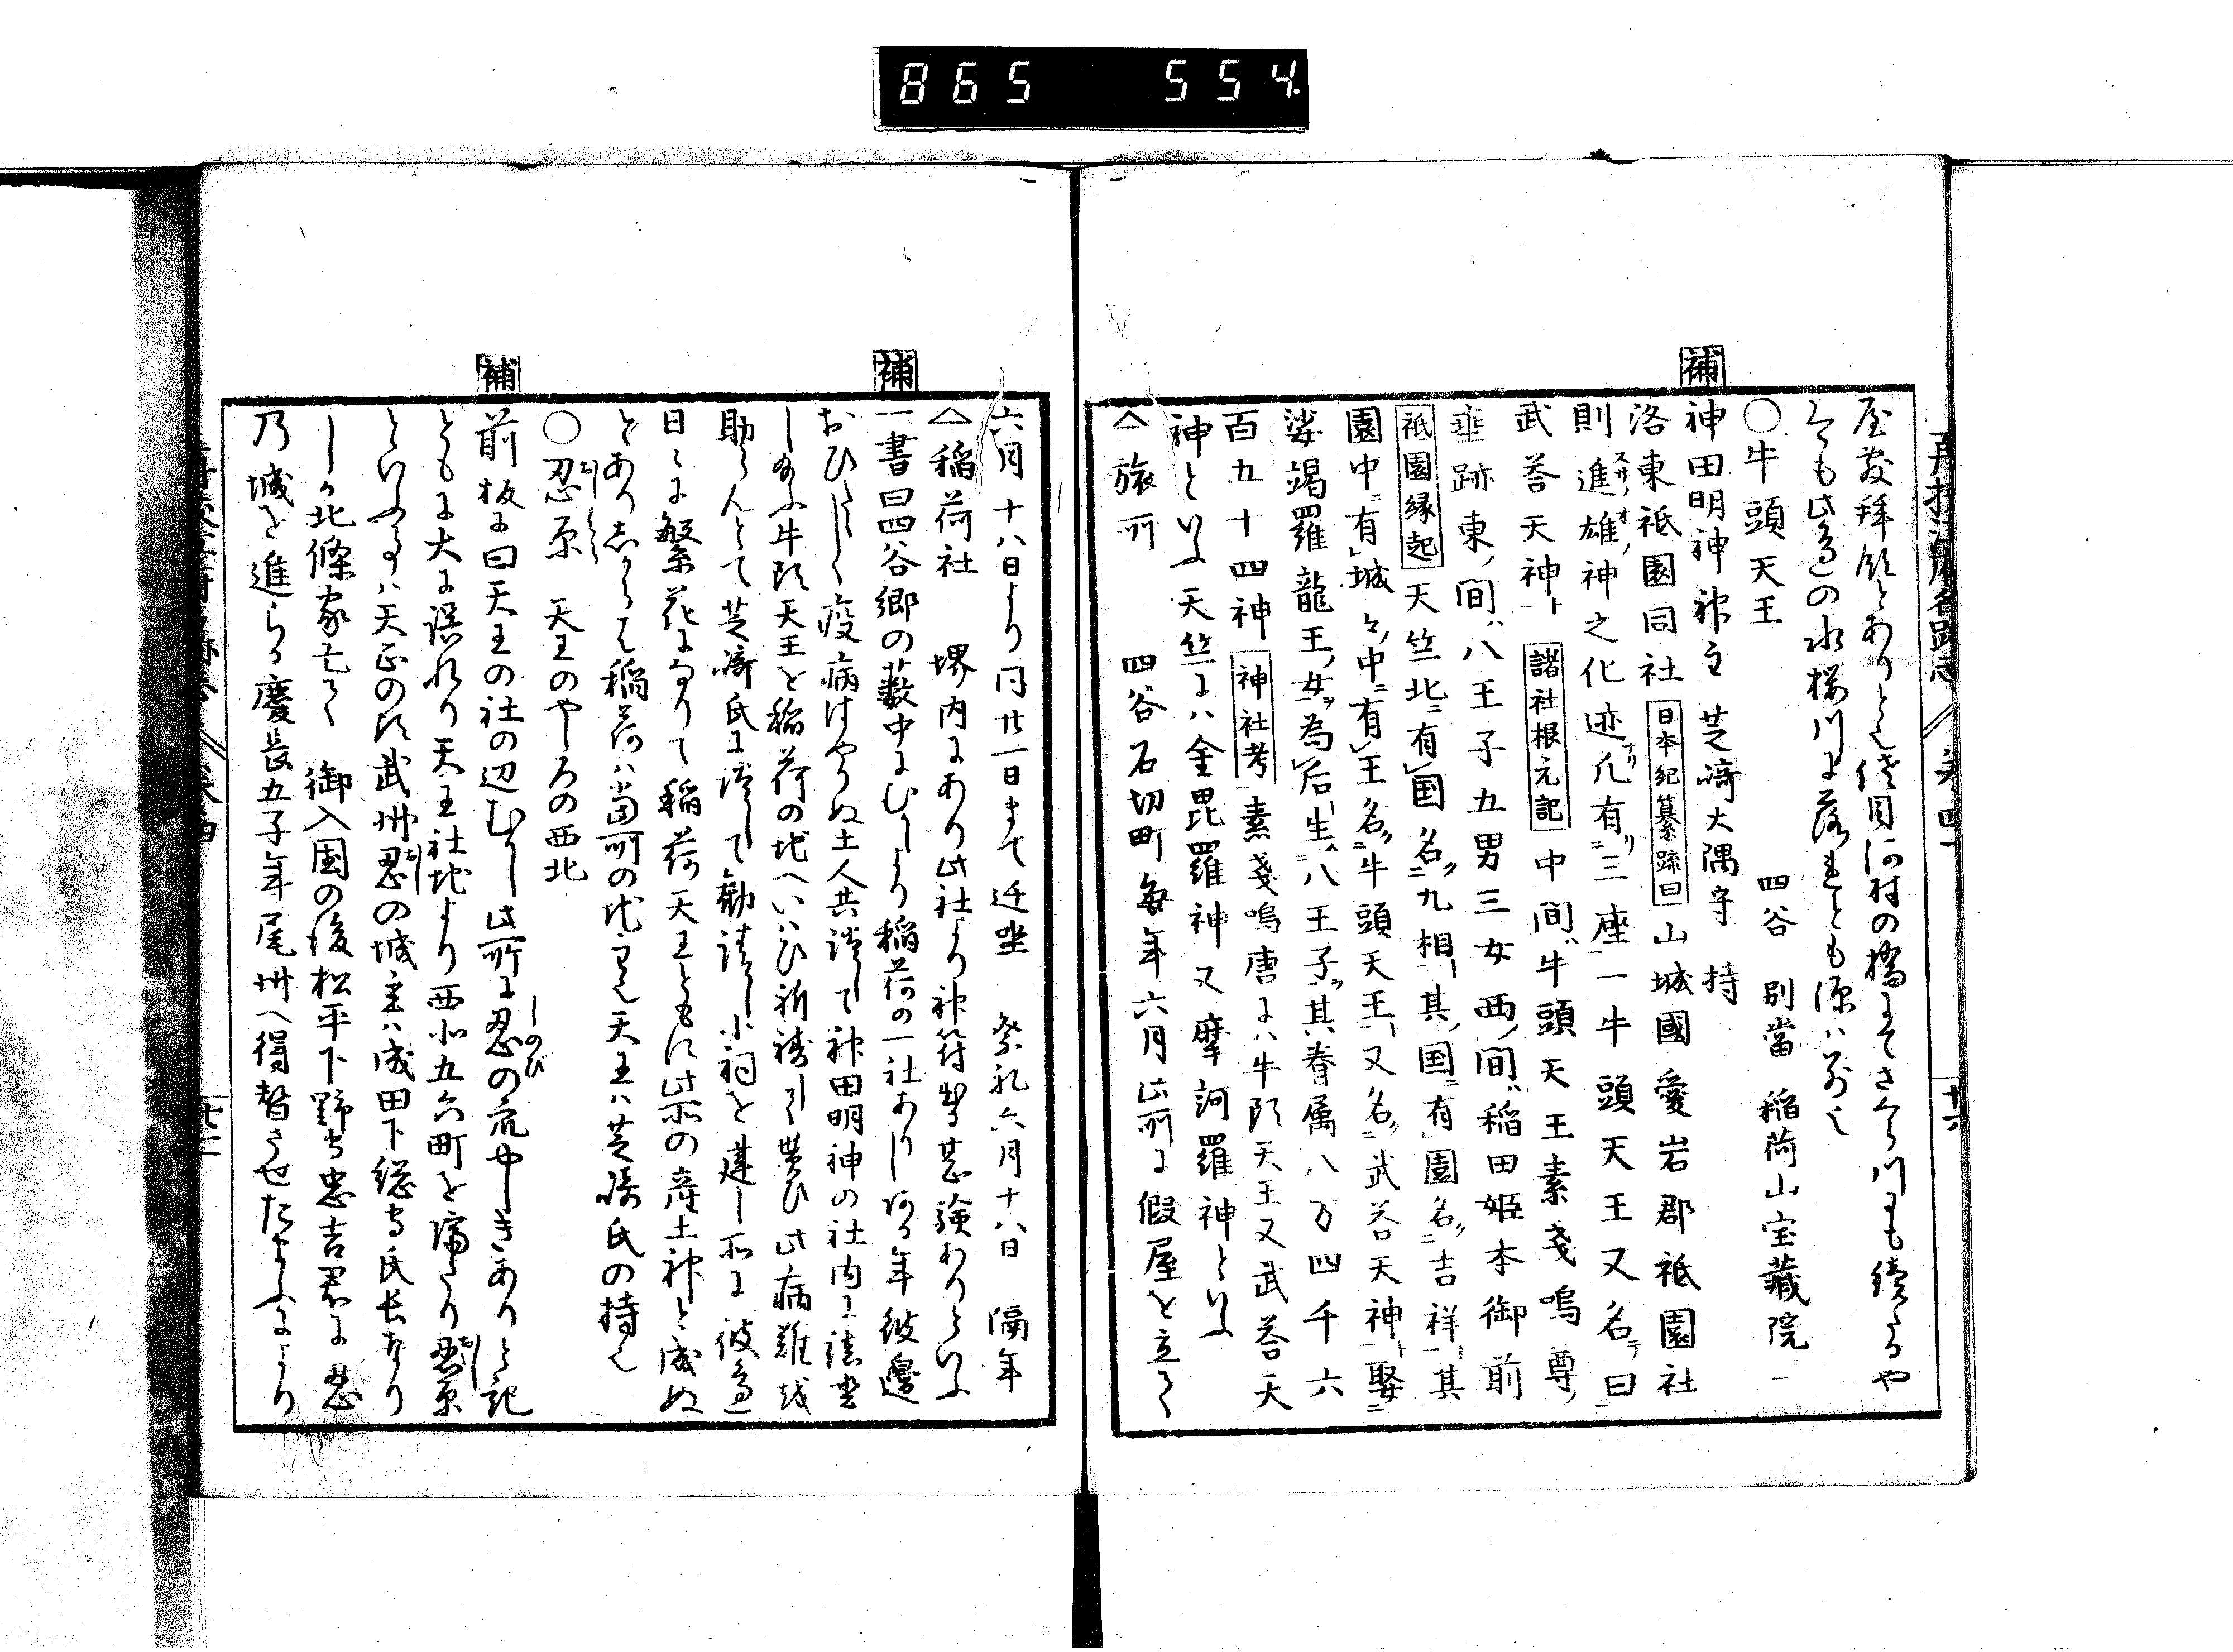 865 554.
屋敷拝領とありとも後日河村の橋にてさくら川にも続きるや
今も此邊の水桜川に落るとも源ハ別也
○牛頭天王 四谷 別當 稲荷山宝藏院
補
神田明神神主 芝崎大隅守 持
洛東祇園同社 日本紀纂疏曰 山城國愛岩郡祇園社
則進雄神之化迹凡有三座一牛頭天王又名曰
武荅天神 諸社根元記 中間牛頭天王素戔嗚尊
垂跡東間八王子五男三女西間稲田姫本御前
祇園縁起 天竺北有国名九相其国有園名吉祥其
園中有城々中有王名牛頭天王又名武荅天神娶
娑竭羅龍王女為后生八王子其眷属八万四千六
百五十四神 神社考 素戔嗚唐にハ牛頭天王又武荅天
神といふ天竺にハ金毘羅神又摩訶羅神といふ
△旅所 四谷石切町毎年六月此所に假屋を立て
六月十八日より同廿一日まて迁坐 祭礼六月十八日 隔年
△稲荷社 堺内にあり此社より神符出る甚験ありといふ
補
一書曰四谷郷の藪中にむかしより稲荷の一社ありし何年彼邊
おひたゝしく疫病はやりぬ土人共談して神田明神の社内に鎮坐
し給ふ牛頭天王を稲荷の地へいはひ祈祷し此病難を
助らんとて芝崎氏に談して勧請し小祠を建し所に彼邊
日々に繁花になりて稲荷天王ともに此所の産土神と成ぬ
とありしからは稲荷ハ當所の地主天王ハ芝崎氏の持也
○忍原 天王のやしろの西北
補
前板に曰天王の社の辺むかし此所に忍の流やしきありと記
ともに大に誤れり天王社地より西北五六町を隔たり忍原
といふ事ハ天正の頃武州忍の城主ハ成田下総守氏長なり
しか北條家亡て 御入国の後松平下野守忠吉君に忍
乃城を進らる慶長五子年尾州へ得替させたまふにより